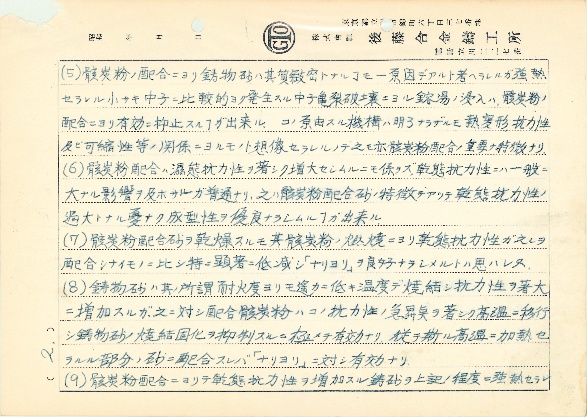 昭和 年 月 日
GTO
株式會社 後藤合金鋳工所
(5) 骸炭粉ノ配合ニヨリ鋳物砂ハ其質緻密トナルコモ一原因デアルト考ヘラレルガ強熱
セラレル小サキ中子ニ比較的ヨク発生スル中子亀裂破壊ニヨル鎔湯ノ浸入ハ骸炭粉ノ
配合ニヨリ有効ニ抑止スルコガ出来ル コノ原由スル機構ハ明ラデナキモ熱変形抗力性
及ビ可縮性等ノ関係ニヨルモノト想像セラレルノデ之モ亦骸炭粉配合ノ重要ナ特徴ナリ
(6) 骸炭粉配合ハ湿態抗力性ヲ著シク増大セシムルニモ係ラズ乾態抗力性ニハ一般ニ
大ナル影響ヲ及ホサザルガ普通ナリ、之ハ骸炭粉配合砂ノ特徴デアリテ乾態抗力性ノ
過大トナル憂ナク成型性ヲ優良ナラシムルコガ出来ル
(7) 骸炭粉配合砂ヲ乾燥スルモ其骸炭粉ノ燃焼ニヨリ乾態抗力性ガ之レヲ
配合シナイモノニ比シ特ニ顕著ニ低減シ「ナリヨリ」ヲ良好ナラシメルトハ思ハレヌ
(8) 鋳物砂ハ其所謂耐火度ヨリモ遙カニ低キ温度デ焼結シ抗力性ヲ著大
ニ増加スルガ之ニ対シ配合骸炭粉ハコノ抗力性ノ急昇臭ヲ著シク高温ニ移行
シ鋳物砂ノ焼結固化ヲ抑制スルニ極メテ有効ナリ 従テ斯ル高温ニ加熱セ
ラルル部分ノ砂ニ配合スレバ「ナリヨリ」ニ対シ有効ナリ
(9) 骸炭粉配合ニヨリテ乾態抗力性ヲ増加スル鋳砂ヲ上記ノ程度ニ強熱セラレ
(2.)